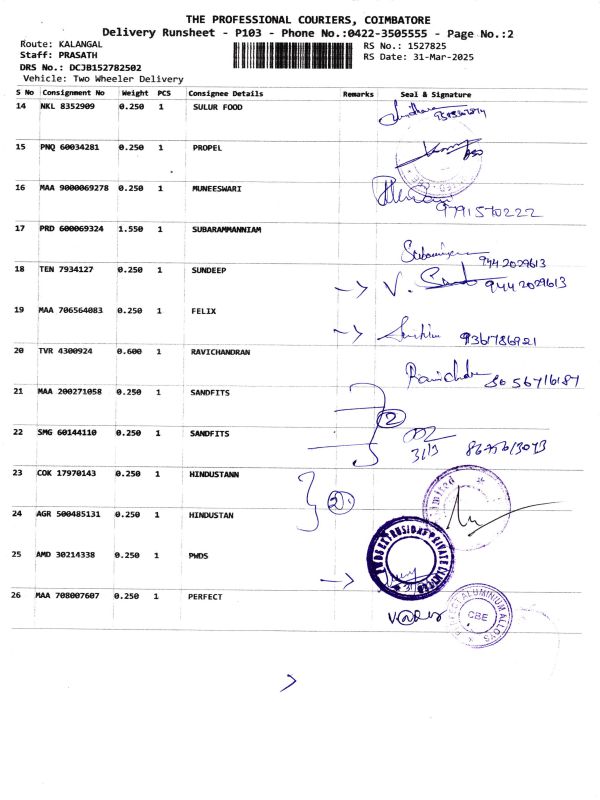 THE PROFESSIONAL COURIERS, COIMBATORE
Delivery Runsheet - P103 - Phone No.:0422-3505555 - Page No.:2
Route: KALANGAL RS No.: 1527825
Staff: PRASATH RS Date: 31-Mar-2025
DRS No.: DCJB152782502
Vehicle: Two Wheeler Delivery
S No Consignment No Weight PCS Consignee Details Remarks Seal & Signature
14 NKL 8352909 0.250 1 SULUR FOOD
15 PNQ 60034281 0.250 1 PROPEL
16 MAA 9000069278 0.250 1 MUNEESWARI
9791570222
17 PRD 600069324 1.550 1 SUBARAMMANNIAM
944 2029613
18 TEN 7934127 0.250 1 SUNDEEP
V. 944 2029613
19 MAA 706564083 0.250 1 FELIX
9361786921
20 TVR 4300924 0.600 1 RAVICHANDRAN
80 56716187
21 MAA 200271058 0.250 1 SANDFITS
2
22 SMG 60144110 0.250 1 SANDFITS
31/3
23 COK 17970143 0.250 1 HINDUSTANN
2
24 AGR 500485131 0.250 1 HINDUSTAN
25 AMD 30214338 0.250 1 PWDS
26 MAA 708007607 0.250 1 PERFECT
PERFECT ALUMINIUM ALLOYS
CBE